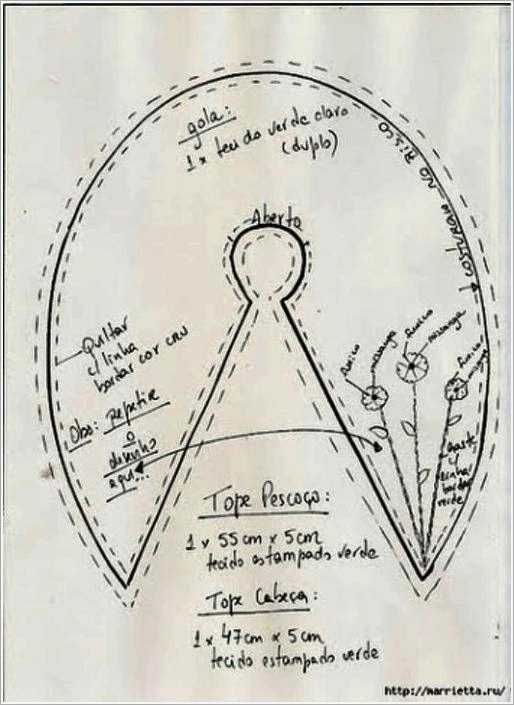 gola:
1 x tecido verde claro
(duplo)
COSTURAR NO RISCO
Aberto
Quiltar
c/ linha
bordar cor cru
Obs: Repetir
o
desenho
aqui...
fuxico
miçanga
fuxico
miçanga
fuxico
haste
c/
linha
bordar
verde
Tope Pescoço:
1 x 55 cm x 5 cm
tecido estampado verde
Tope Cabeça:
1 x 47 cm x 5 cm
tecido estampado verde
http://marrietta.ru/